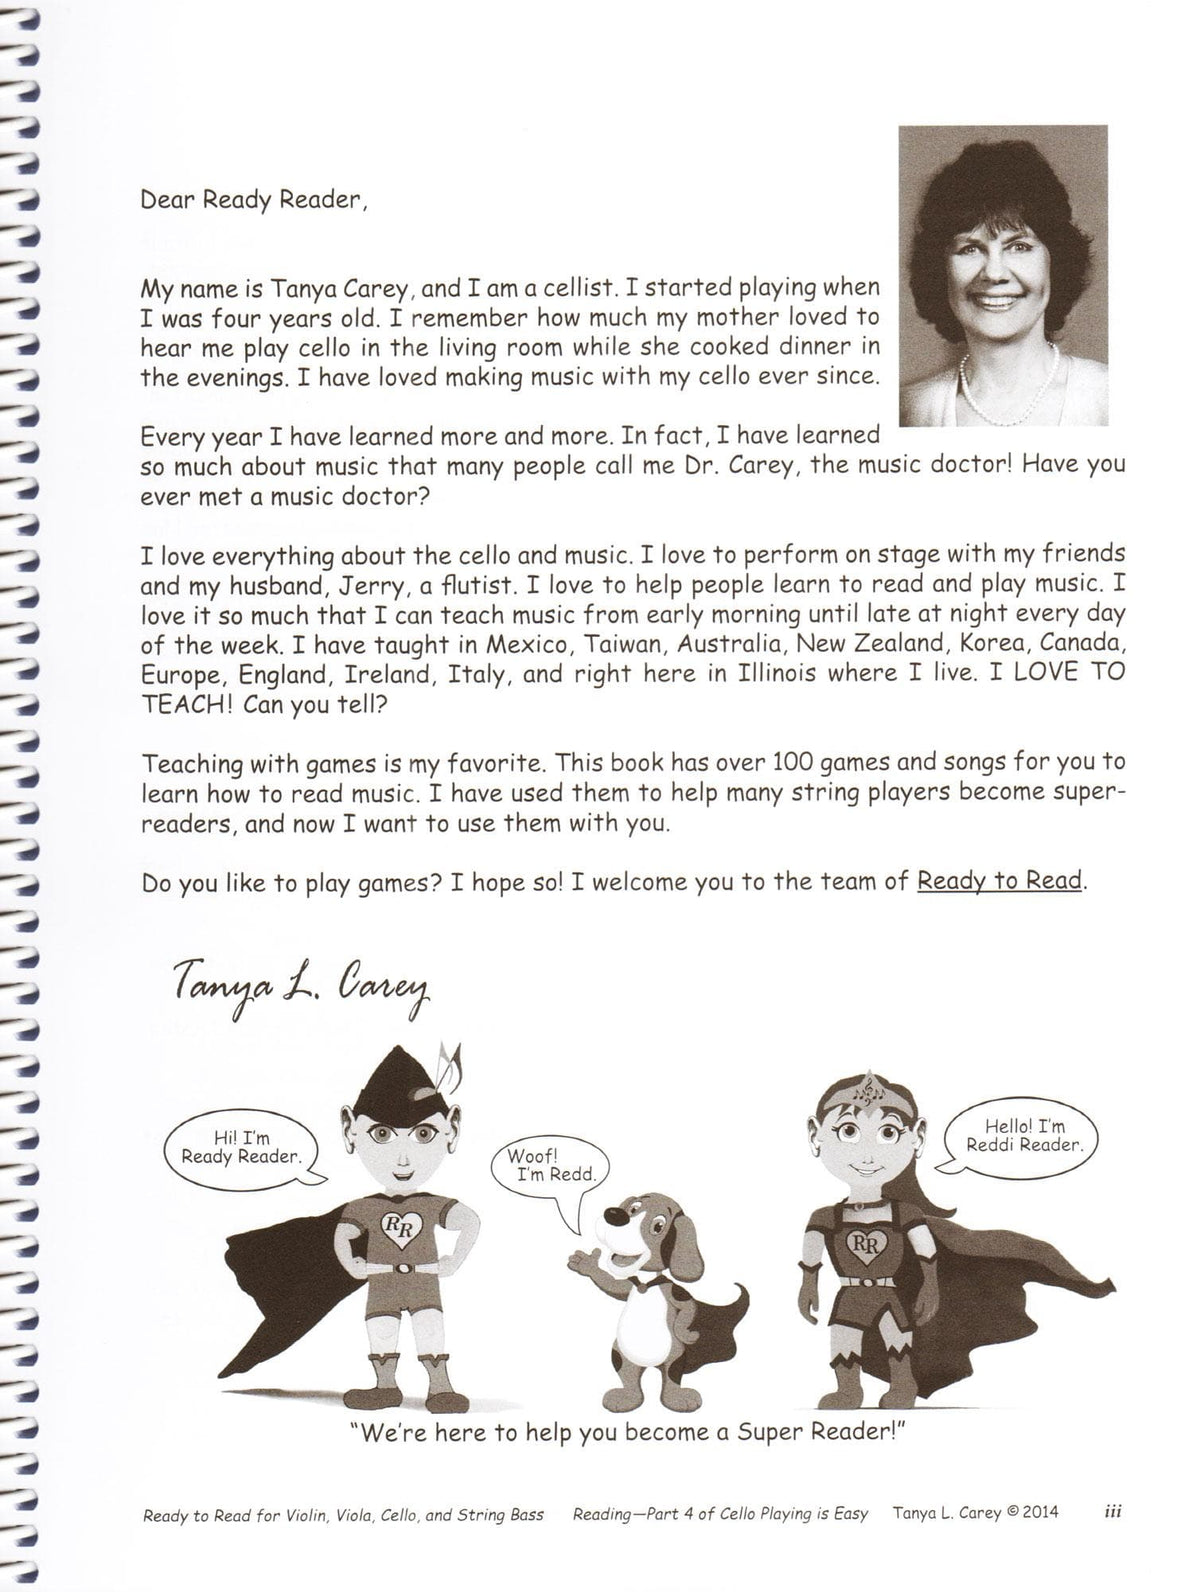 Dear Ready Reader,
My name is Tanya Carey, and I am a cellist. I started playing when
I was four years old. I remember how much my mother loved to
hear me play cello in the living room while she cooked dinner in
the evenings. I have loved making music with my cello ever since.
Every year I have learned more and more. In fact, I have learned
so much about music that many people call me Dr. Carey, the music doctor! Have you
ever met a music doctor?
I love everything about the cello and music. I love to perform on stage with my friends
and my husband, Jerry, a flutist. I love to help people learn to read and play music. I
love it so much that I can teach music from early morning until late at night every day
of the week. I have taught in Mexico, Taiwan, Australia, New Zealand, Korea, Canada,
Europe, England, Ireland, Italy, and right here in Illinois where I live. I LOVE TO
TEACH! Can you tell?
Teaching with games is my favorite. This book has over 100 games and songs for you to
learn how to read music. I have used them to help many string players become super-
readers, and now I want to use them with you.
Do you like to play games? I hope so! I welcome you to the team of Ready to Read.
Tanya L. Carey
Hi! I'm
Ready Reader.
Woof!
I'm Redd.
Hello! I'm
Reddi Reader.
RR
RR
"We're here to help you become a Super Reader!"
Ready to Read for Violin, Viola, Cello, and String Bass Reading—Part 4 of Cello Playing is Easy Tanya L. Carey © 2014 iii